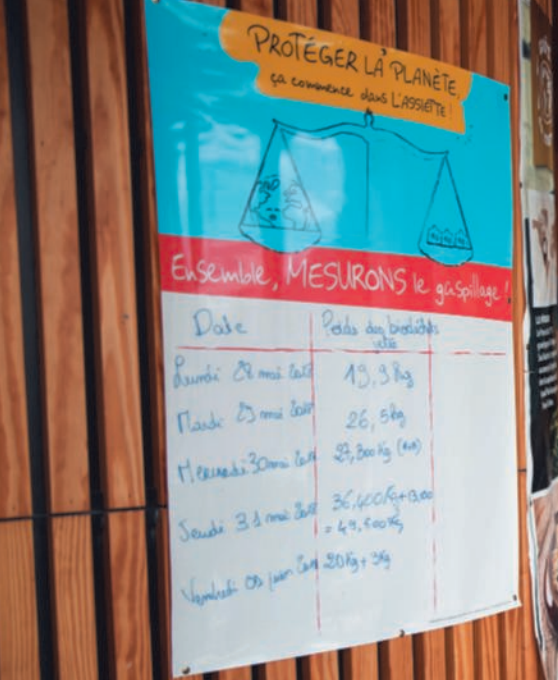 PROTÉGER LA PLANÈTE,
ça commence dans L'ASSIETTE !
Ensemble, MESURONS le gaspillage !
Date Poids des biodéchets
Lundi 28 mai 19,9 kg
Mardi 29 mai 26,5kg
Mercredi 30 mai 27,800 kg
Jeudi 31 mai 36,400 kg +
= 49,600 kg
Vendredi 01 juin 20kg + 3kg